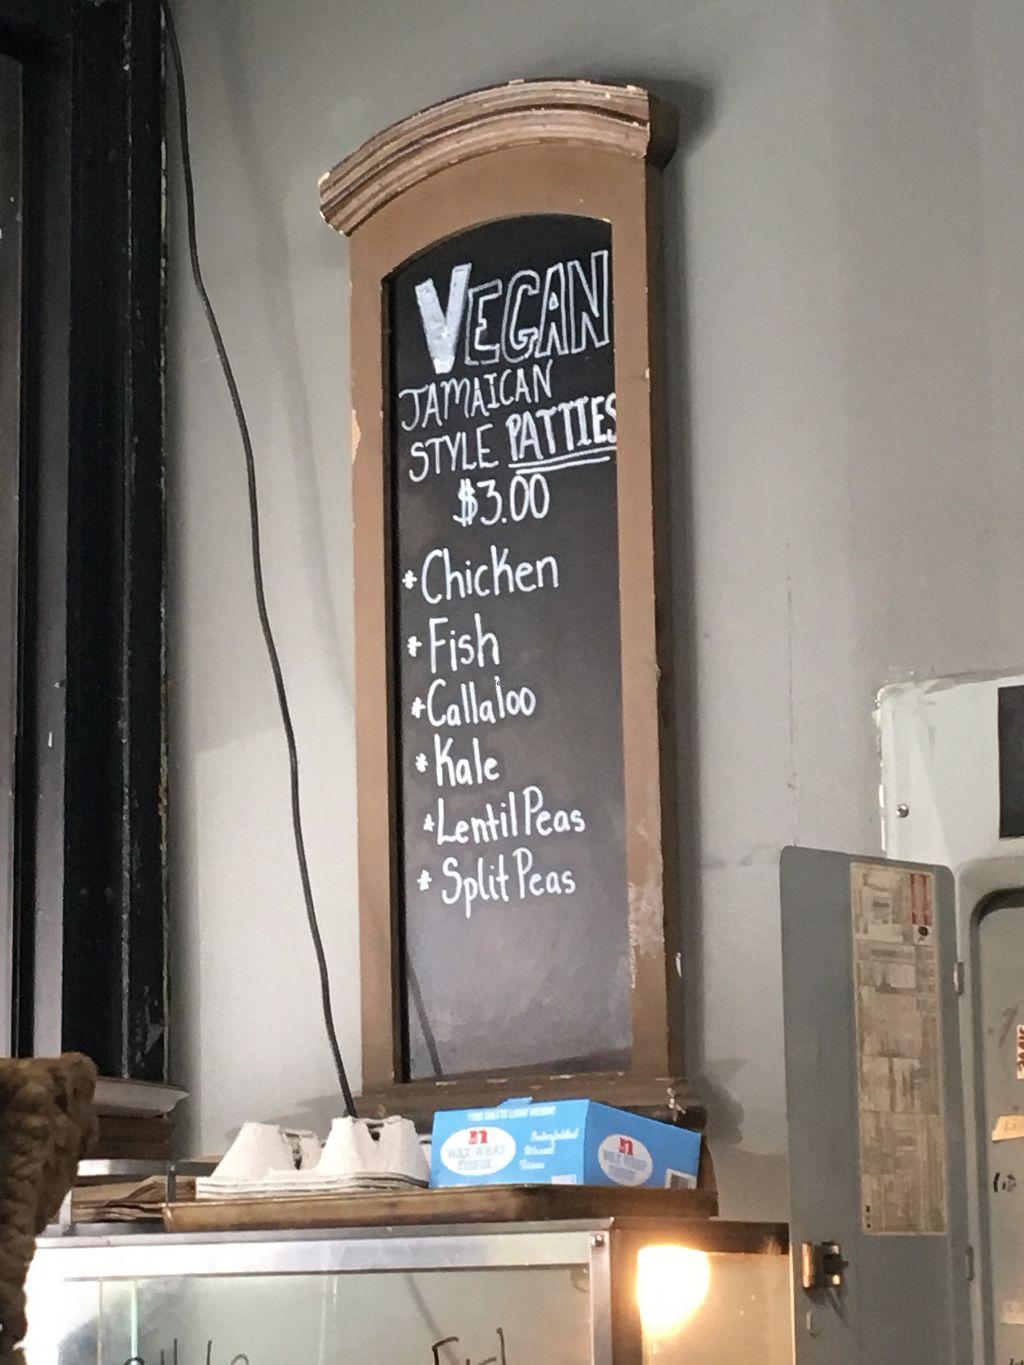 VEGAN
JAMAICAN
STYLE PATTIES
$3.00
* Chicken
* Fish
* Callaloo
* Kale
* Lentil Peas
* Split Peas
WAX WRAP
TISSUE
Interfolded
Waxed
Tissue
WAX WRAP
TISSUE